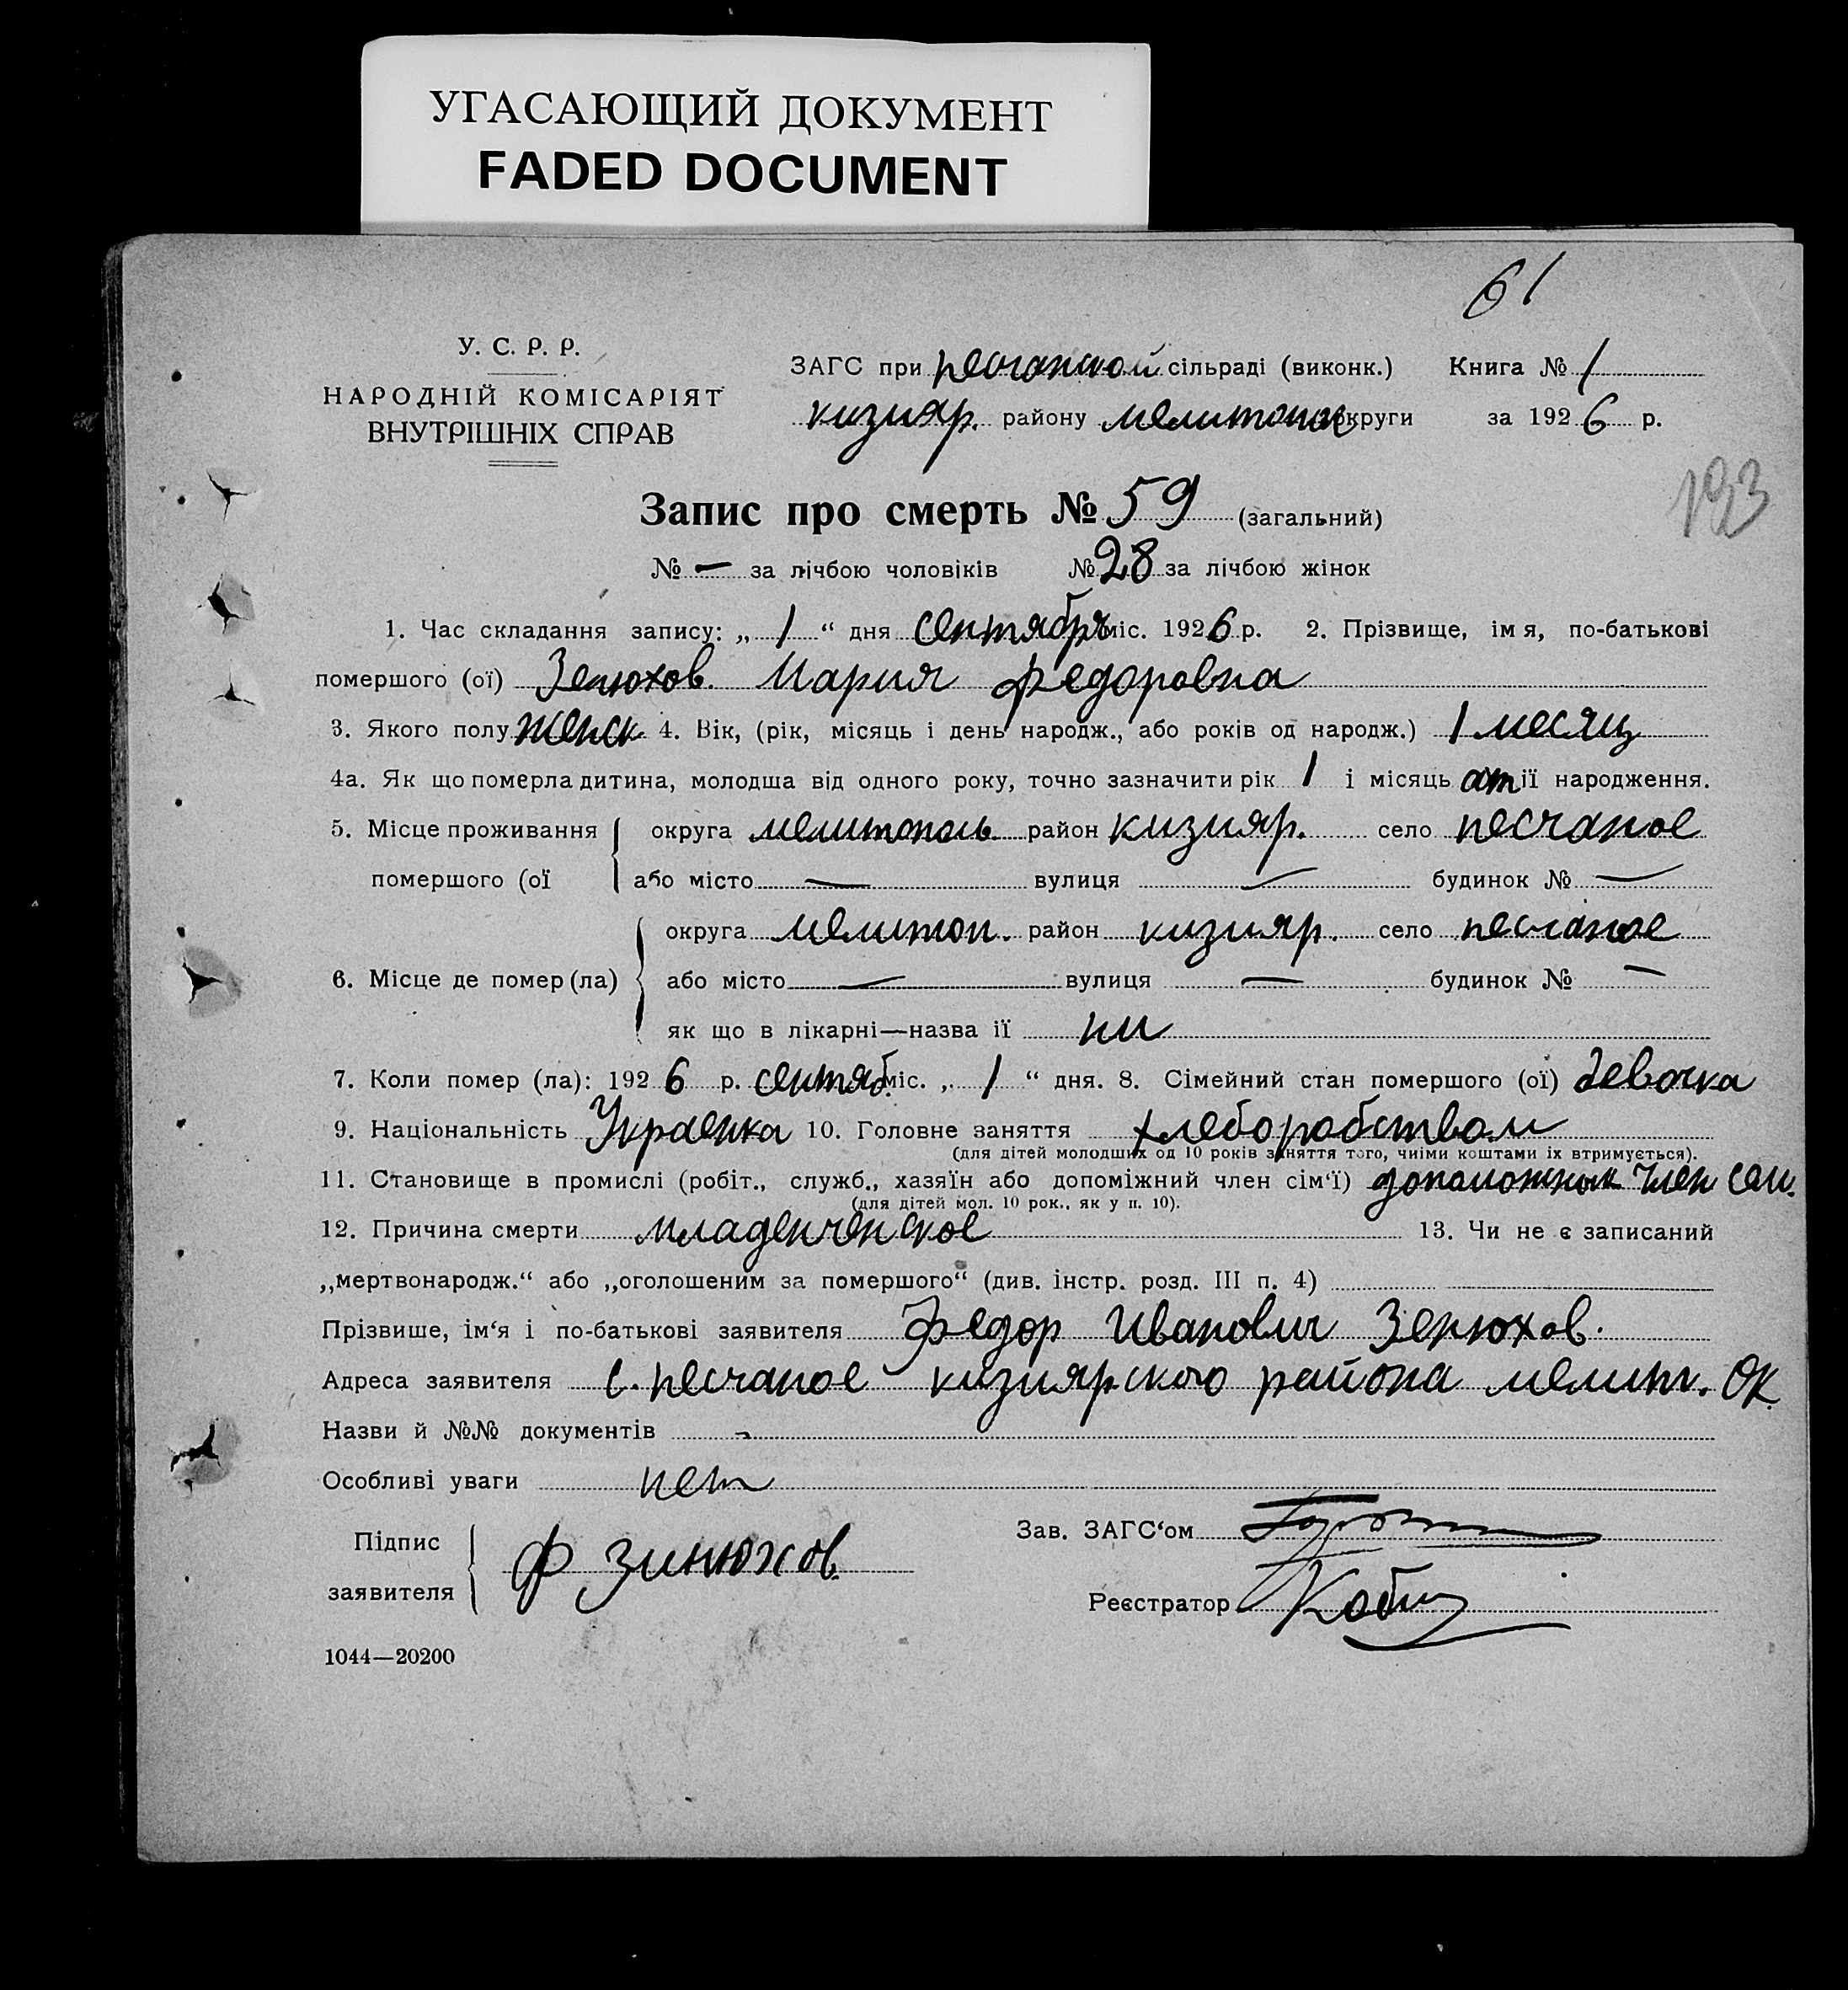 УГАСАЮЩИЙ ДОКУМЕНТ
FADED DOCUMENT
61
У. С. Р. Р.
НАРОДНІЙ КОМІСАРІЯТ
ВНУТРІШНІХ СПРАВ
ЗАГС при песчанской сільраді (виконк.) Книга № 1
кизияр. району мелитопол округи за 1926 р.
193
Запис про смерть № 59 (загальний)
№ — за лічбою чоловіків № 28 за лічбою жінок
1. Час складання запису: „ 1 “ дня сентября міс. 1926 р. 2. Прізвище, імя, по-батькові
помершого (ої) Зенюхов. Мария Федоровна
3. Якого полу женск 4. Вік, (рік, місяць і день народж., або років од народж.) 1 месяц
4а. Як що померла дитина, молодша від одного року, точно зазначити рік 1 і місяць от її народження.
5. Місце проживання помершого (ої округа мелитополь район кизияр. село песчаное
або місто — вулиця — будинок № —
6. Місце де помер (ла) округа мелитоп. район кизияр. село песчаное
або місто — вулиця — будинок № —
як що в лікарні—назва її ни
7. Коли помер (ла): 1926 р. сентяб. міс. „ 1 “ дня. 8. Сімейний стан помершого (ої) девочка
9. Національність Украенка 10. Головне заняття хлеборобством
(для дітей молодших од 10 років заняття того, чиїми коштами їх втримується).
11. Становище в промислі (робіт., служб., хазяїн або допоміжний член сім'ї) допоможнык член сем.
(для дітей мол. 10 рок., як у п. 10).
12. Причина смерти младенченское 13. Чи не є записаний
„мертвонародж.“ або „оголошеним за помершого“ (див. інстр. розд. III п. 4)
Прізвише, ім'я і по-батькові заявителя Федор Иванович Зенюхов.
Адреса заявителя с. песчаное кизиярского района мелит. ок.
Назви й №№ документів -
Особливі уваги нет
Підпис заявителя Ф Зинюхов.
Зав. ЗАГС'ом
Реєстратор
1044—20200